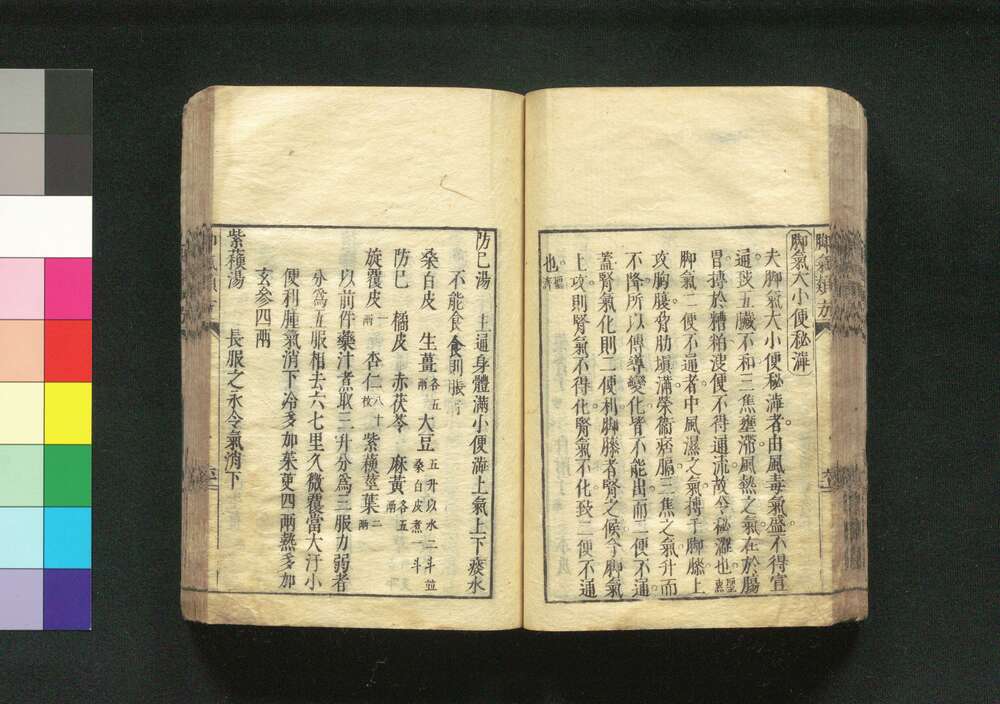 脚氣類方
脚氣大小便秘澁
夫脚氣大小便秘澁者由風毒氣盛不得宣
通致五臓不和三焦壅滯風熱之氣在於腸
胃搏於糟粕溲便不得通流故令秘澁也聖惠
脚氣二便不通者中風濕之氣搏于脚膝上
攻胸腹脅肋塡滿榮衞痞膈三焦之氣升而
不降所以傳導變化皆不能出而二便不通
蓋腎氣化則二便利脚膝者腎之候今脚氣
上攻則腎氣不得化腎氣不化致二便不通
也聖濟
防巳湯 主通身體滿小便澁上氣上下痰水
不能食食則脹
桑白皮 生薑各五兩 大豆五升以水二斗並桑白皮煮一斗
防巳 橘皮 赤茯苓 麻黃各五兩
旋覆皮一兩 杏仁八十枚 紫蘇莖葉二兩
以前件藥汁煮取三升分爲三服力弱者
分爲五服相去六七里久微覆當大汗小
便利腫氣消下冷多加茱萸四兩熱多加
玄参四兩
紫蘇湯 長服之永令氣消下